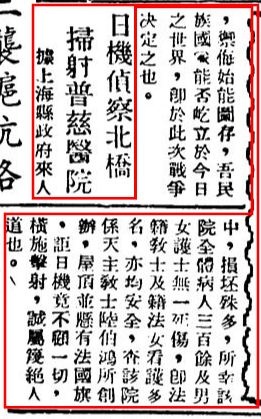 ，禦侮始能圖存，吾民
族國家能否屹立於今日
之世界，卽於此次戰爭
決定之也。
日機偵察北橋
掃射普慈醫院
據上海縣政府來人
襲滬杭路
中，損坏殊多，所幸該
院全體病人三百餘及男
女護士無一死傷，卽法
籍教士及籍法女看護多
名，亦均安全，查該院
係天主教士陸伯鴻所創
辦，屋頂並懸有法國旗
，詎日機竟不顧一切，
橫施擊射，誠屬篾絕人
道也。